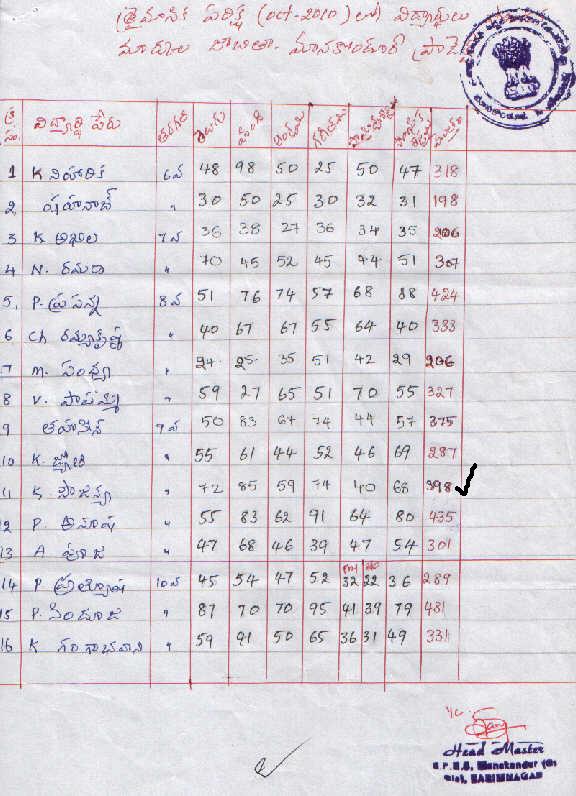 త్రైమాసిక పరీక్ష (oct-2010) లో విద్యార్థులు
మార్కుల జాబితా. మానకొండూర్
క్ర సం. విద్యార్థి పేరు తరగతి తెలుగు హిందీ ఇంగ్లీషు గణితము
1 K నిహారిక 6వ 48 98 50 25 50 47 318
2 షహనాజ్ " 30 50 25 30 32 31 198
3 K అఖిల 7వ 36 38 27 36 34 35 206
4 N. రమాదే " 70 45 52 45 44 51 307
5. P. ప్రసన్న 8వ 51 76 74 57 68 88 424
6 Ch " 40 67 67 55 64 40 333
7 M. సంధ్య " 24 25 35 51 42 29 206
8 V. పాపమ్మ " 59 27 65 51 70 55 327
9 తహసీన్ 9వ 50 83 67 74 44 57 375
10 K. జ్యోతి " 55 61 44 52 46 69 287
11 K. సౌజన్య " 72 85 59 74 40 68 398
12 P. అనూష " 55 83 62 91 64 80 435
13 A పూజ " 47 68 46 39 47 54 301
14 P ప్రత్యూష 10వ 45 54 47 52 32 22 36 289
15 P. సింధూజ " 87 70 70 95 41 39 79 481
16 K గంగాభవాని " 59 91 50 65 36 31 49 331
Head Master
Manakondur
Dist. KARIMNAGAR